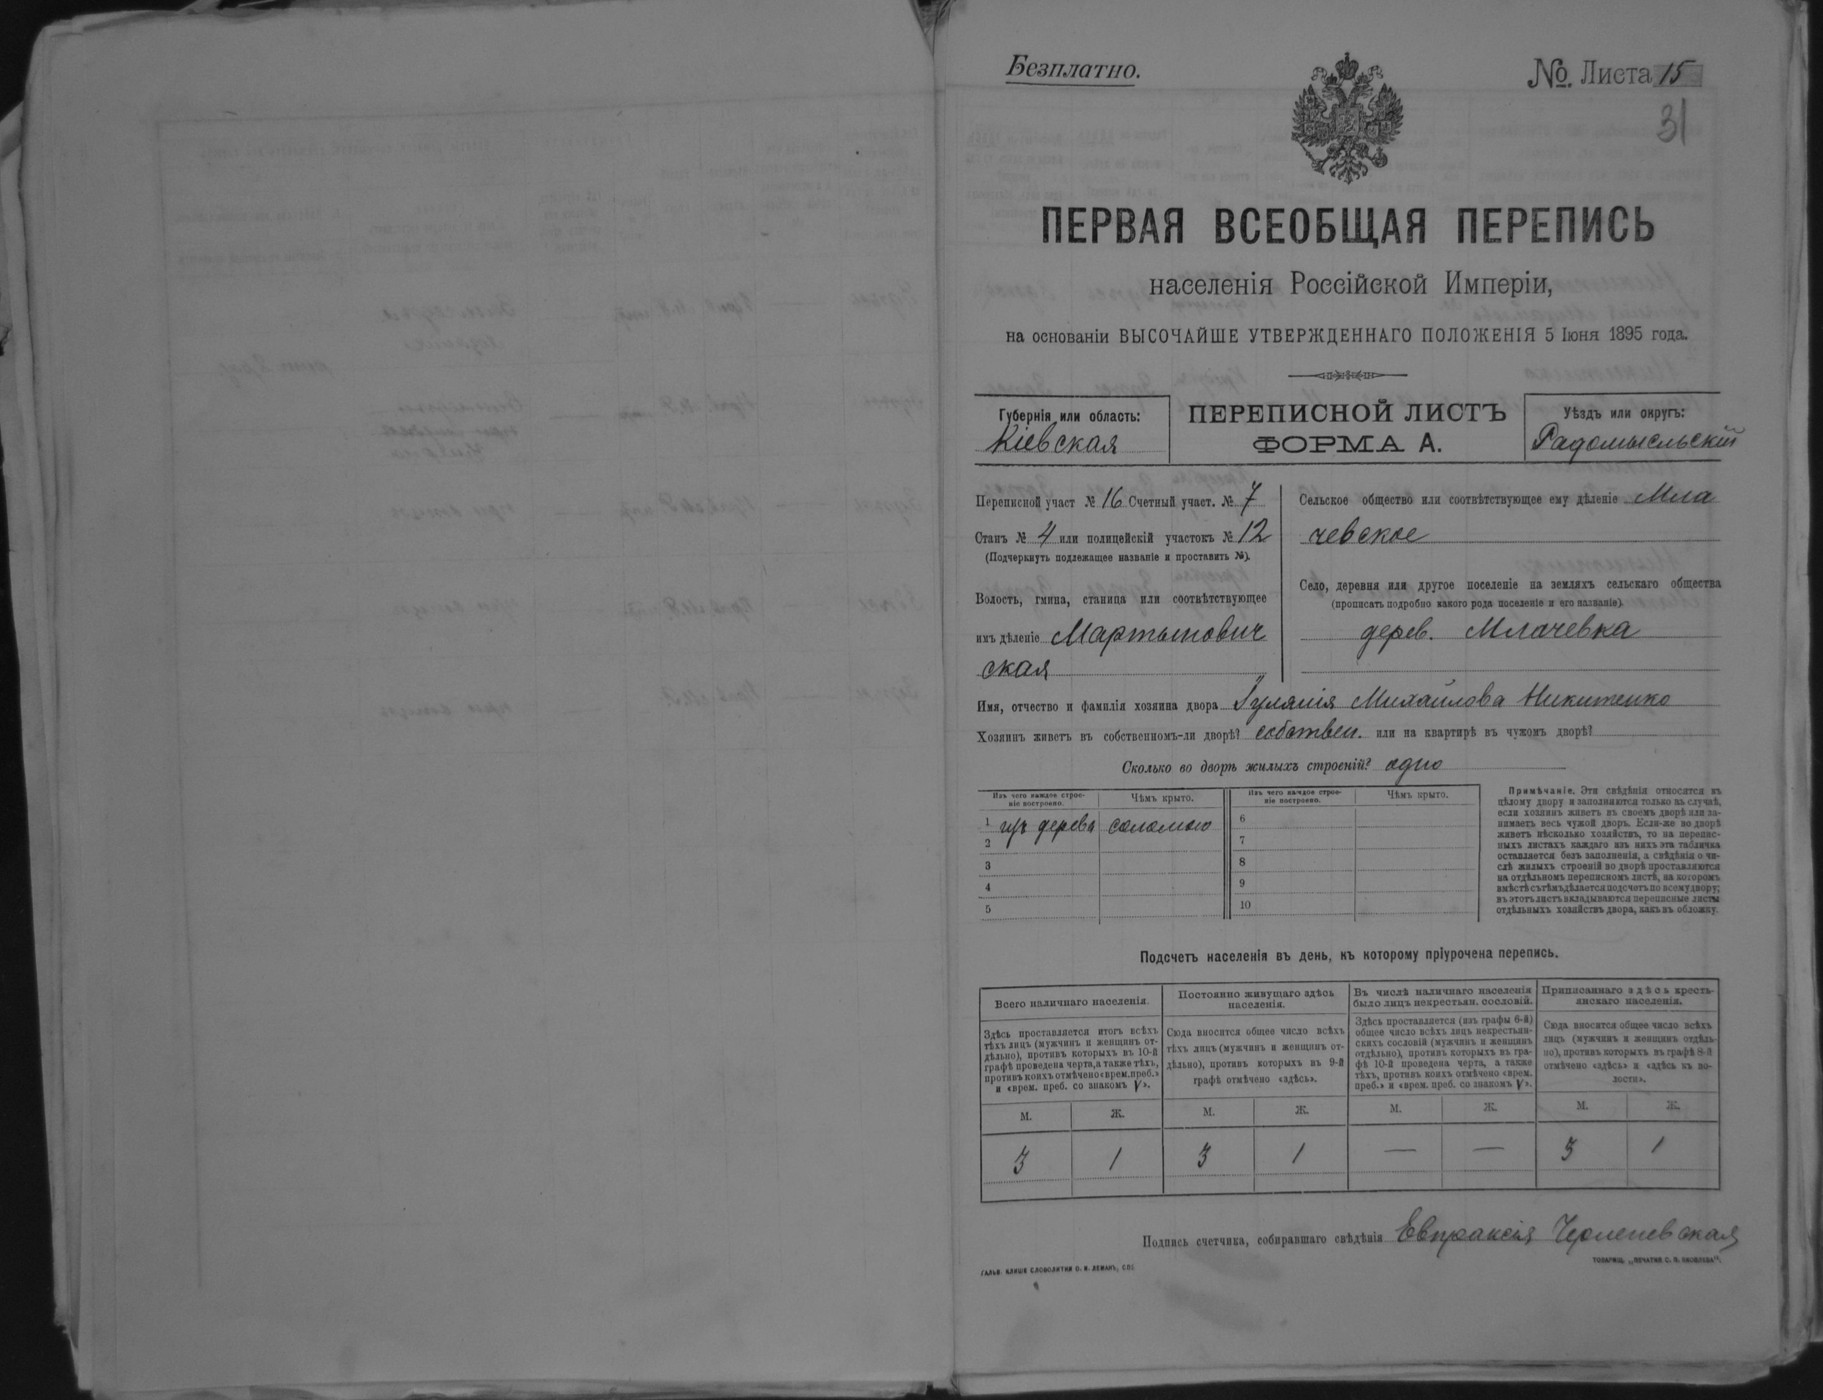 Безплатно.
№. Листа 15
31
ПЕРВАЯ ВСЕОБЩАЯ ПЕРЕПИСЬ
населенія Россійской Имперіи,
на основаніи ВЫСОЧАЙШЕ УТВЕРЖДЕННАГО ПОЛОЖЕНІЯ 5 Іюня 1895 года.
Губернія или область:
Кіевская
ПЕРЕПИСНОЙ ЛИСТЪ
ФОРМА А.
Уѣздъ или округъ:
Радомысльскій
Переписной участ № 16 Счетный участ. № 7
Станъ № 4 или полицейскій участокъ № 12
(Подчеркнуть подлежащее названіе и проставить №).
Волость, гмина, станица или соотвѣтствующее
имъ дѣленіе Мартынович
ская
Сельское общество или соотвѣтствующее ему дѣленіе Мла
чевское
Село, деревня или другое поселеніе на земляхъ сельскаго общества
(прописать подробно какого рода поселеніе и его названіе)
дерев. Млачевка
Имя, отчество и фамилія хозяина двора Іуліянія Михайлова Никитенко
Хозяинъ живетъ въ собственномъ-ли дворѣ? собствен. или на квартирѣ въ чужомъ дворѣ?
Сколько во дворѣ жилыхъ строеній? одно
Изъ чего каждое строе-
ніе построено.
Чѣмъ крыто.
Изъ чего каждое строе-
ніе построено.
Чѣмъ крыто.
1 изъ дерева соломою
2
3
4
5
6
7
8
9
10
Примѣчаніе. Эти свѣдѣнія относятся къ
цѣлому двору и заполняются только въ случаѣ,
если хозяинъ живетъ въ своемъ дворѣ или за-
нимаетъ весь чужой дворъ. Если-же во дворѣ
живетъ нѣсколько хозяйствъ, то на перепис-
ныхъ листахъ каждаго изъ нихъ эта табличка
оставляется безъ заполненія, а свѣдѣнія о чи-
слѣ жилыхъ строеній во дворѣ проставляются
на отдѣльномъ переписномъ листѣ, на которомъ
вмѣстѣ съ тѣмъ дѣлается подсчетъ по всему двору;
въ этотъ листъ вкладываются переписные листы
отдѣльныхъ хозяйствъ двора, какъ въ обложку.
Подсчетъ населенія въ день, къ которому пріурочена перепись.
Всего наличнаго населенія.
Здѣсь проставляется итогъ всѣхъ
тѣхъ лицъ (мужчинъ и женщинъ от-
дѣльно), противъ которыхъ въ 10-й
графѣ проведена черта, а также тѣхъ,
противъ коихъ отмѣчено «врем. преб.»
и «врем. преб. со знакомъ V».
Постоянно живущаго здѣсь
населенія.
Сюда вносится общее число всѣхъ
тѣхъ лицъ (мужчинъ и женщинъ от-
дѣльно), противъ которыхъ въ 9-й
графѣ отмѣчено «здѣсь».
Въ числѣ наличнаго населенія
было лицъ некрестьян. сословій.
Здѣсь проставляется (изъ графы 6-й)
общее число всѣхъ лицъ некрестьян-
скихъ сословій (мужчинъ и женщинъ
отдѣльно), противъ которыхъ въ гра-
фѣ 10-й проведена черта, а также
тѣхъ, противъ коихъ отмѣчено «врем.
преб.» и «врем. преб. со знакомъ V».
Приписаннаго здѣсь кресть-
янскаго населенія.
Сюда вносится общее число всѣхъ
лицъ (мужчинъ и женщинъ отдѣль-
но), противъ которыхъ въ графѣ 8-й
отмѣчено «здѣсь» и «здѣсь въ во-
лости».
М. Ж. М. Ж. М. Ж. М. Ж.
3 1 3 1 — — 3 1
Подпись счетчика, собиравшаго свѣдѣнія Евпраксія
ТОВАРИЩ. „ПЕЧАТНЯ С. П. ЯКОВЛЕВА“.
ГАЛЬВ. КЛИШЕ СЛОВОЛИТНИ О. И. ЛЕМАНЪ, СПБ